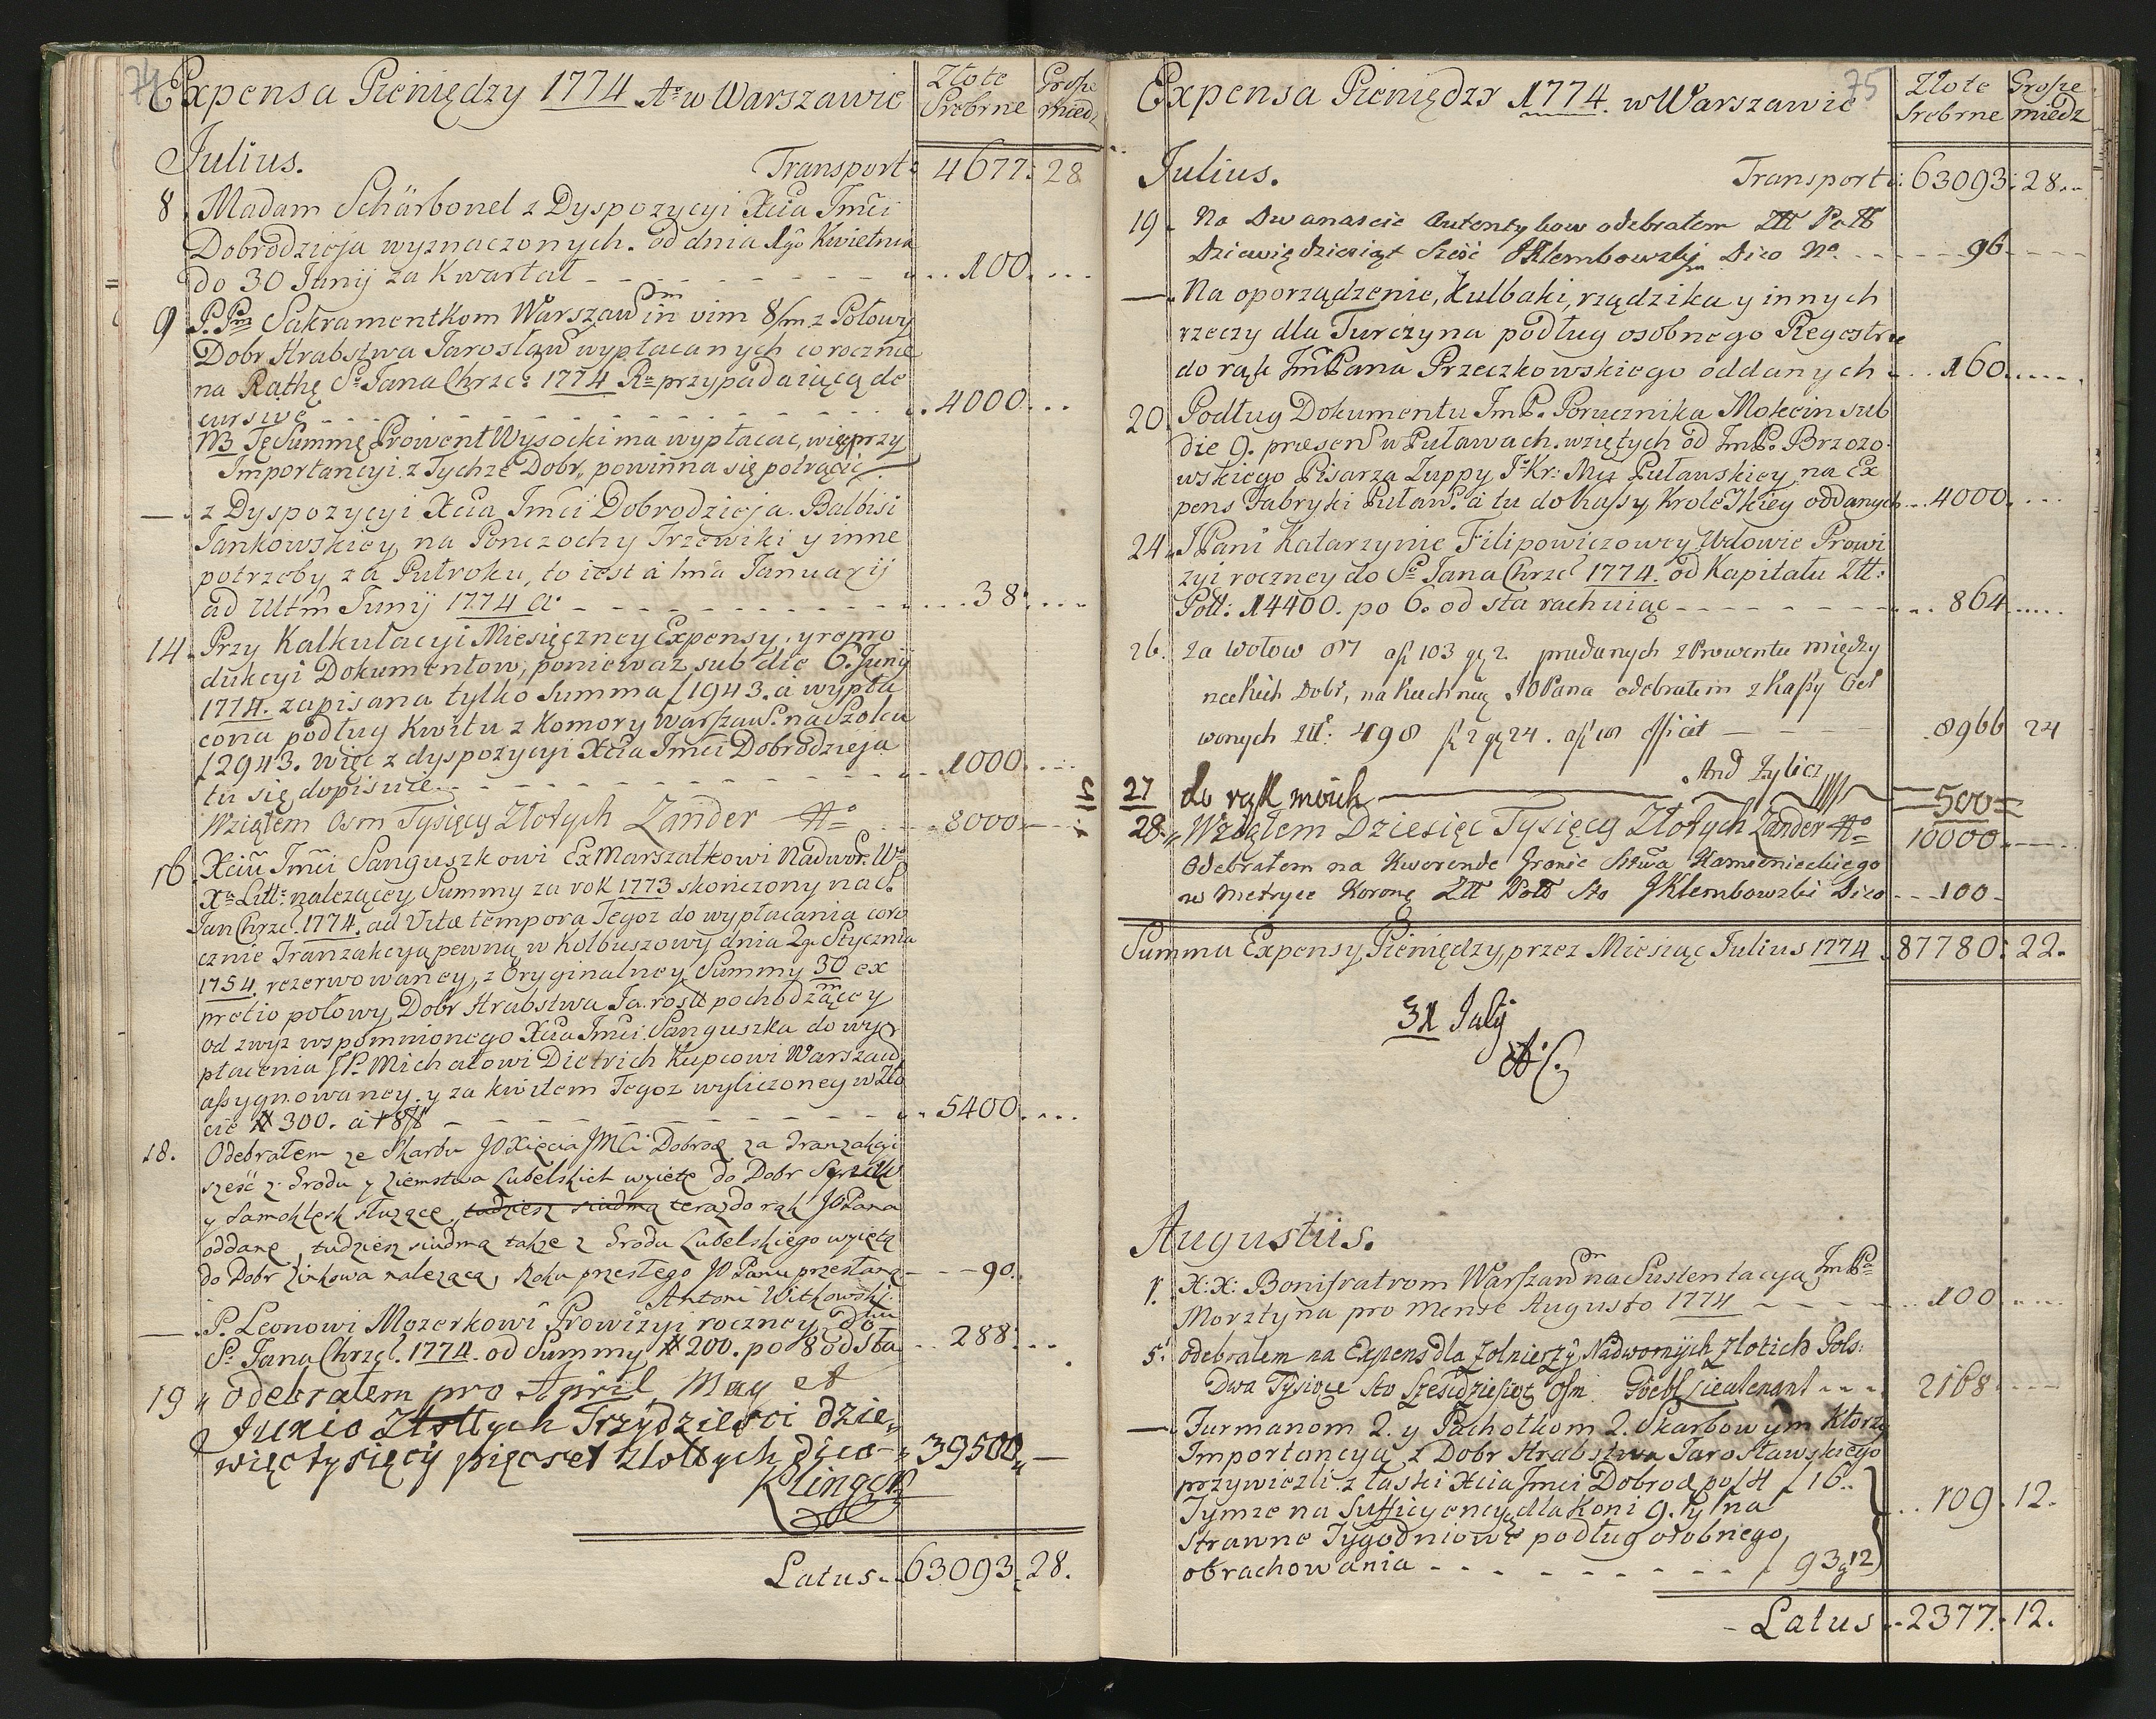 74
Expensa Pieniędzy 1774 Aº w Warszawie
Złote Srebrne
Grosze miedz
Julius. Transport: 4677: 28
8. Madam Schärbonel z Dyspozycyi Xcia Jmci
Dobrodzieja wyznaczonych. od dnia 1go Kwietnia
do 30 Junij za Kwartał 100.
9. P.Pm Sakramentkom Warszaw in vim 8/m z Połowy
Dobr Hrabstwa Jarosław wypłacanych corocznie
na Rathę S. Jana Chrzc: 1774 Ra przypadaiącą de
cursive 4000
NB Tę Summę Prowent Wysocki ma wypłacac, więc przy
Importancyi z Tychże Dobr, powinna się potrącić
— z Dyspozycyi Xcia Jmci Dobrodzieja. Balbisi
Jankowskiey na Ponczochy Trzewiki y inne
potrzeby za Pułroku, to iest a 1ma Januarij
ad Ultm Junij 1774 a. 38.
14. Przy Kalkulacyi Miesięczney Expensy, y repro
dukcyi Dokumentow, poniewaz sub die 6. Junij
1774. zapisana tylko Summa f 1943. a wypła
cona podług Kwitu z Komory Warszaw. na Szolca
f 2943. więc z dyspozycyi Xcia Jmci Dobrodzieja
tu się dopisuie 1000
Wziąłem Osm Tysięcy Złotych Zander 8000
16. Xciu Jmci Sanguszkowi Ex Marszałkowi Nadwor. W
Xa Litt: nalezącey Summy za rok 1773 skończony na S.
Jan Chrzc. 1774. ad Vitæ tempora Tegoz do wypłacania coro
cznie Tranzakcyą pewną w Kolbuszowy dnia 2go Stycznia
1754. rezerwowaney, z Oryginalney Summy 30 ex
pretio połowy Dobr Hrabstwa Jarosł pochodzącey
od zwyz wspomnionego Xcia Jmci Sanguszka do wy
płacenia JP. Michałowi Dietrich Kupcowi Warszaw
assygnowaney. y za kwitem Tegoz wyliczoney w Zło
cie # 300. a f 18 5400
18. Odebrałem ze Skarbu JOXięcia JMCi Dobrog za Tranzakcyi
sześć z Grodu y Ziemstwa Lubelskich wyięte do Dobr
y Samoklęsk służące, tudziesz siudmą teraz do rąk JOPana
oddane, tudziesz siudmą także z Grodu Lubelskiego wyiętą
do Dobr Zinkowa należącą, Roku przesłego JO Panu przesłaną 90.
Antoni Witkowski.
— P. Leonowi Mozerkowi Prowizyi roczney do
S. Jana Chrzc. 1774. od Summy # 200. po 8 od sta 288:
19 odebrałem pro April, May et
Junio Złottych Trzydziesci dzie,
więc tysięcy pięcset złottych dico 39500
Klingor
Latus 63093. 28.
75
Expensa Pieniędzy 1774. w Warszawie
Złote srebrne
Grosze miedz
Julius. Transport: 63093: 28
19. Na Dwanascie Autentykow odebrałem Złł Poll
Dziewiędziesiąt Sześć JKlembowski Dico No. 96
— Na oporządzenie, Kulbaki, rządzika y innych
rzeczy dla Turczyna podług osobnego Regestru
do rąk Jm Pana Przeczkowskiego oddanych 160
20. Podług Dokumentu JmP. Porucznika Mokcin sub
die 9. præsen w Puławach. wziętych od JmP. Brzozo
wskiego Pisarza Zuppy J Kr: Mci Puławskiey na Ex
pens Fabryki Puław. a tu do Kassy KroleSkiey oddanych 4000
24. JPani Katarzynie Filipowiczowey Wdowie Prowi
zyi roczney do S. Jana Chrzc 1774. od Kapitału Złł:
Poll: 14400. po 6. od sta rachuiąc 864
26. Za wołow 87 af 103 gr 2 predanych z Prowentu między
neckich Dobr, na kuchnią JOPana odebrałem z Kassy Gel
wonych Złł: 498 fl 2 gr 24. af 18 fficit 8966 24
And Zylicz
27 do rąk moich 500
28. Wziąłem Dziesięc Tysięcy Złotych Zander 10000
Odebrałem na Kwerendę Granic Sttwa Kamienieckiego
w Metryce Koronę Złł Poll Sto JKlembowski Dico 100
Summa Expensy Pieniędzy, przez Miesiąc Julius 1774 87780: 22.
31 July
AC.
Augustus.
1. X:X: Bonifratrom Warszaw na Sustentacyą JmPa
Morztyna pro Mense Augusto 1774 100
5. odebrałem na Expens dla Zolnierzy Nadwornych Złotich Pols:
Dwa Tysiące sto Szesdziesiąt Osm Göebl Lieutenant 2168
— Furmanom 2. y Pachołkom 2. Skarbowym Ktorzy
Importancyą z Dobr Hrabstwa Jarosławskiego
przywiezli z łaski Xcia Jmci Dobrod po f 4 f 16.
Tymze na Sufficyencyą dla Koni 9. y na
strawne Tygodniowe podług osobnego
obrachowania f 93 g 12 109. 12.
Latus 2377. 12.